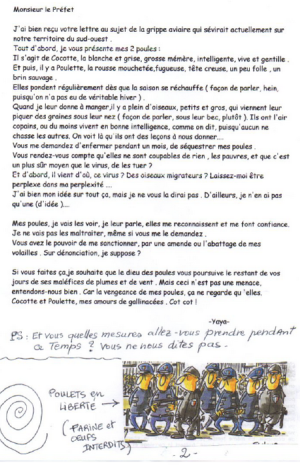 Monsieur le Préfet
J'ai bien reçu votre lettre au sujet de la grippe aviaire qui sévirait actuellement sur
notre territoire du sud-ouest .
Tout d'abord, je vous présente mes 2 poules :
Il s'agit de Cocotte, la blanche et grise, grosse mémère, intelligente, vive et gentille .
Et puis, il y a Poulette, la rousse mouchetée,fugueuse, tête creuse, un peu folle , un
brin sauvage .
Elles pondent régulièrement dès que la saison se réchauffe ( façon de parler, hein,
puisqu'on n'a pas eu de véritable hiver ) .
Quand je leur donne à manger,il y a plein d'oiseaux, petits et gros, qui viennent leur
piquer des graines sous leur nez ( façon de parler, sous leur bec, plutôt ). Ils ont l'air
copains, ou du moins vivent en bonne intelligence, comme on dit, puisqu'aucun ne
chasse les autres. On voit là qu'ils ont des leçons à nous donner...
Vous me demandez d'enfermer pendant un mois, de séquestrer mes poules .
Vous rendez-vous compte qu'elles ne sont coupables de rien , les pauvres, et que c'est
un plus sûr moyen que le virus, de les tuer ?
Et d'abord, il vient d'où, ce virus ? Des oiseaux migrateurs ? Laissez-moi être
perplexe dans ma perplexité ...
J'ai bien mon idée sur tout ça, mais je ne vous la dirai pas . D'ailleurs, je n'en ai pas
qu'une (d'idée )....
Mes poules, je vais les voir, je leur parle, elles me reconnaissent et me font confiance.
Je ne vais pas les maltraiter, même si vous me le demandez .
Vous avez le pouvoir de me sanctionner, par une amende ou l'abattage de mes
volailles . Sur dénonciation, je suppose ?
Si vous faites ça,je souhaite que le dieu des poules vous poursuive le restant de vos
jours de ses maléfices de plumes et de vent . Mais ceci n'est pas une menace,
entendons-nous bien . Car la vengeance de mes poules, ça ne regarde qu'elles.
Cocotte et Poulette, mes amours de gallinacées . Cot cot !
-Yaya-
PS : Et vous quelles mesures allez-vous prendre pendant
ce Temps ? Vous ne nous dites pas .
POULETS en
LIBERTÉ
(FARINE et
OEUFS
INTERDITS)
- 2 -